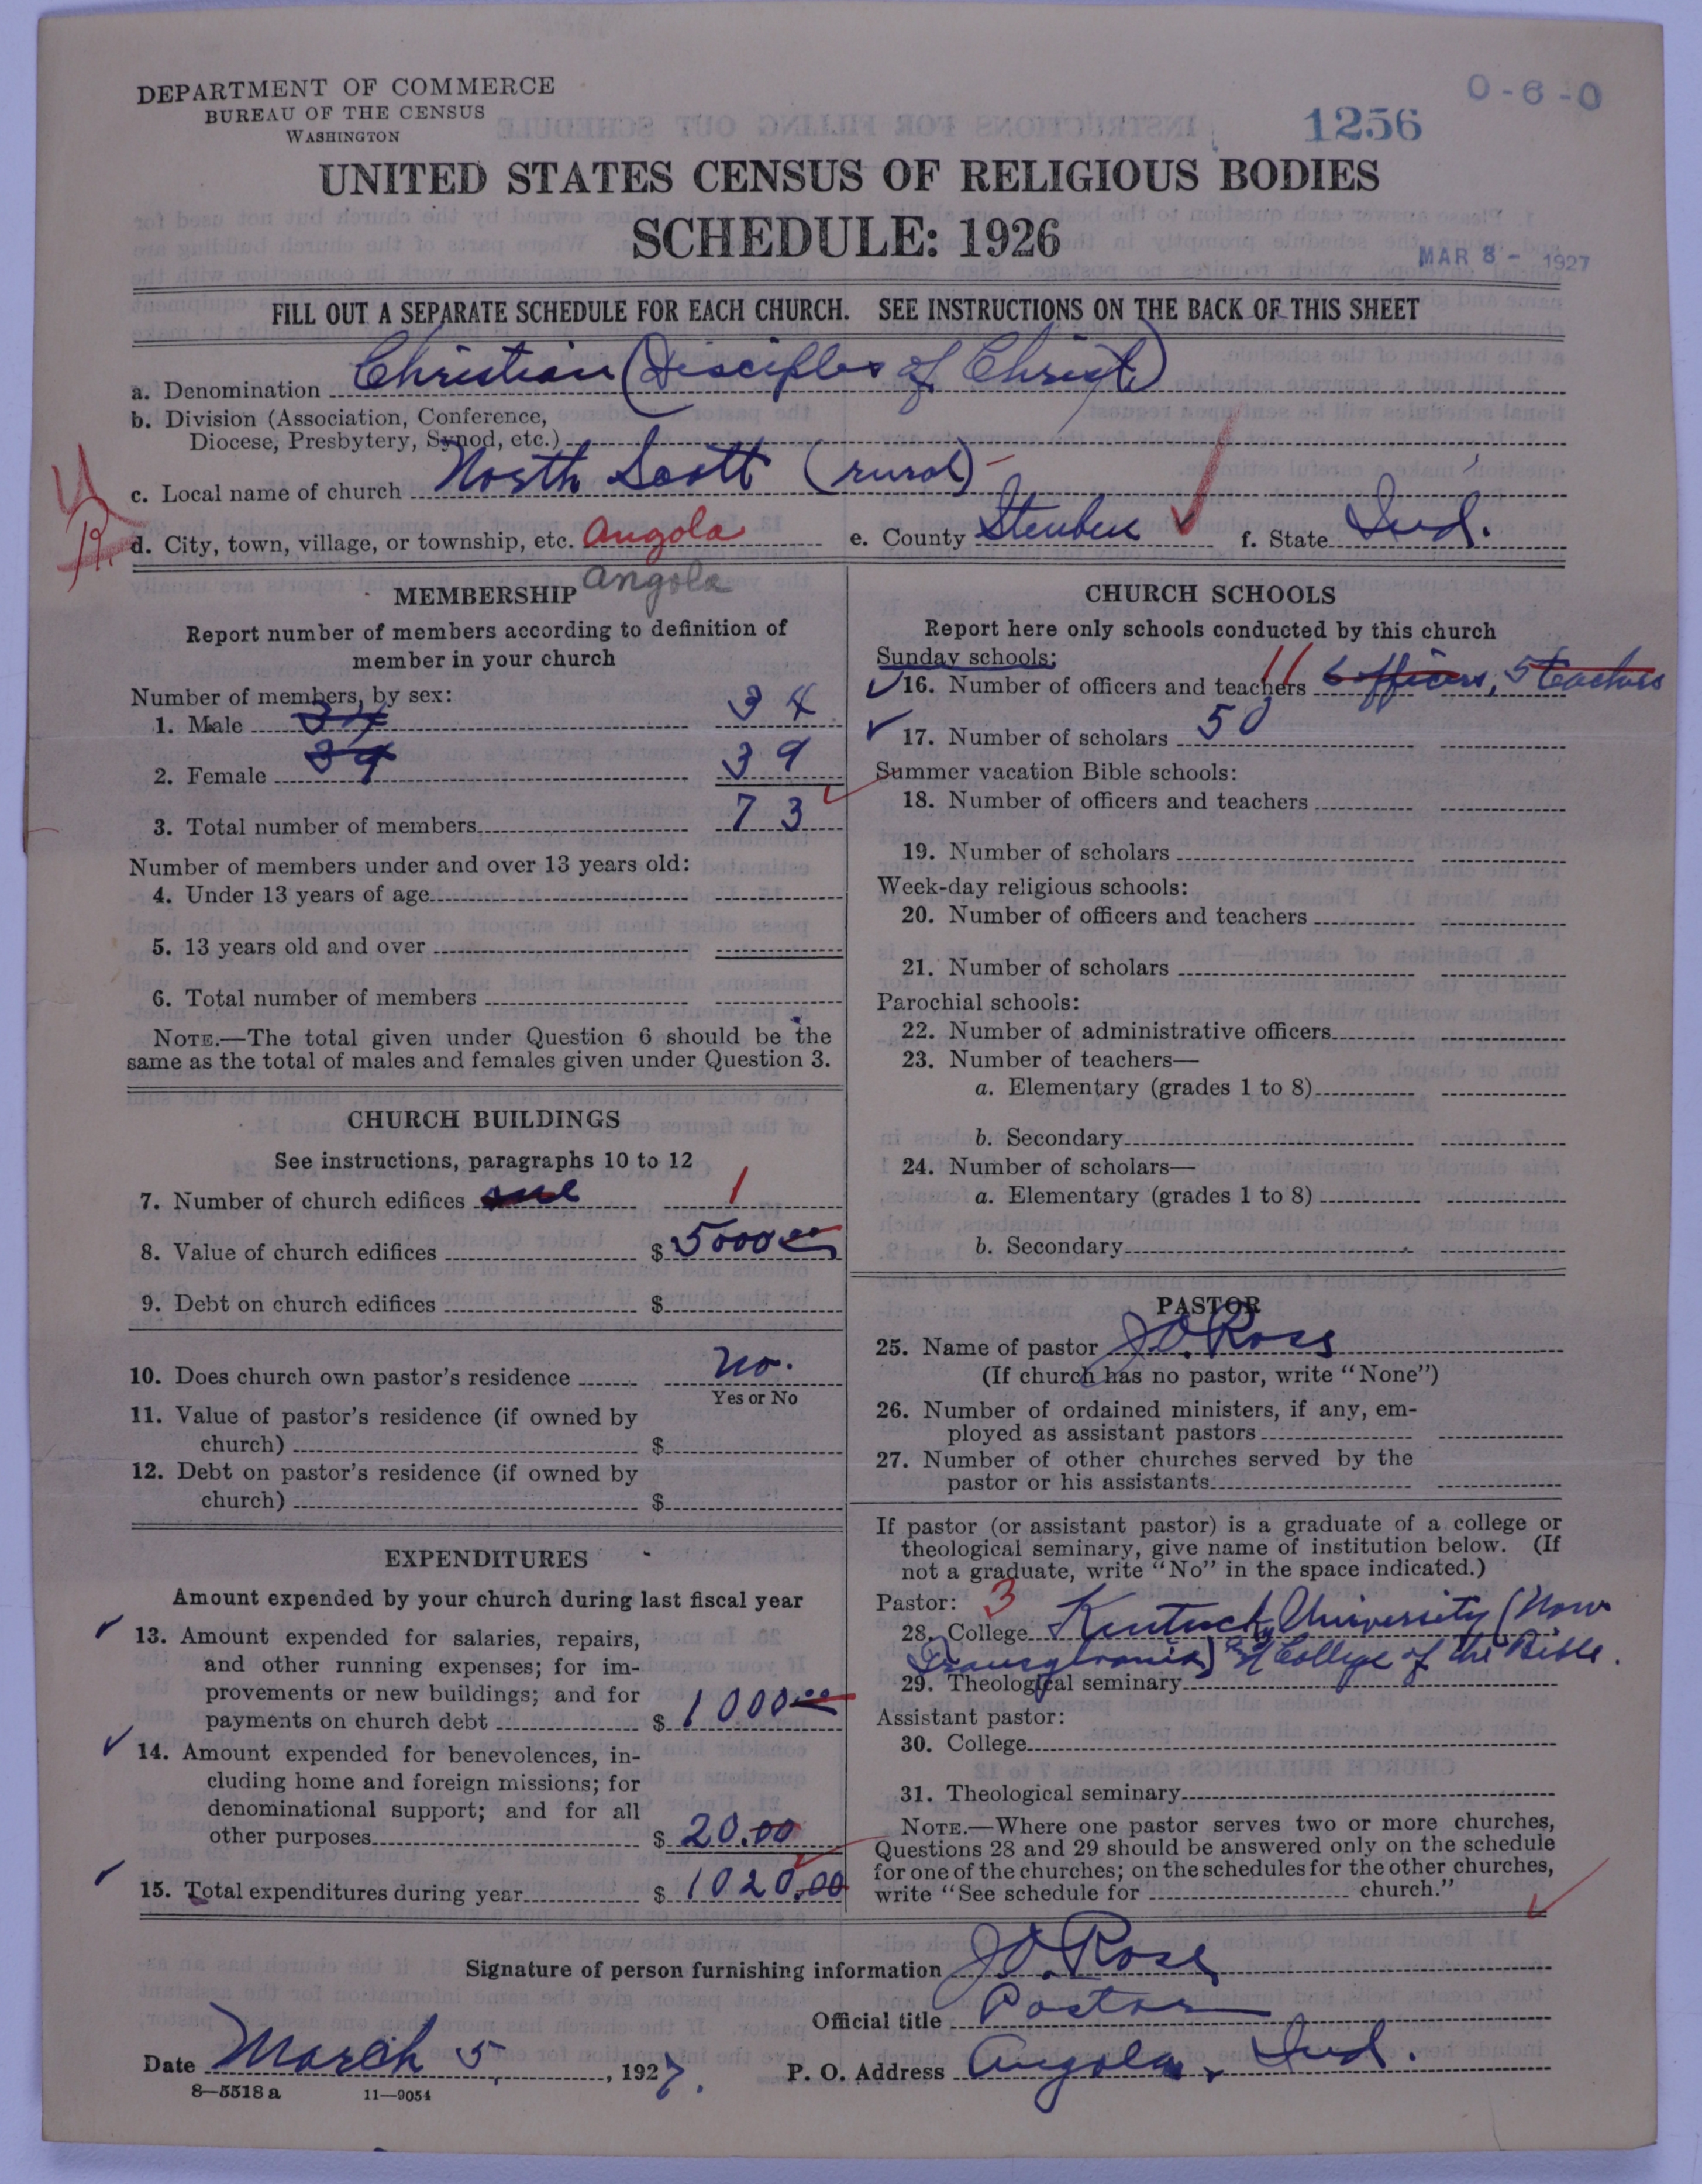 DEPARTMENT OF COMMERCE
BUREAU OF THE CENSUS
WASHINGTON
0-6-0
1256
UNITED STATES CENSUS OF RELIGIOUS BODIES
SCHEDULE: 1926
MAR 8 - 1927
FILL OUT A SEPARATE SCHEDULE FOR EACH CHURCH. SEE INSTRUCTIONS ON THE BACK OF THIS SHEET
a. Denomination Christian (Disciples of Christ)
b. Division (Association, Conference,
Diocese, Presbytery, Synod, etc.)
c. Local name of church North Scott (rural)
d. City, town, village, or township, etc. Angola e. County Steuben f. State Ind.
Angola
MEMBERSHIP
Report number of members according to definition of
member in your church
Number of members, by sex:
1. Male 34 34
2. Female 39 39
3. Total number of members 73
Number of members under and over 13 years old:
4. Under 13 years of age
5. 13 years old and over
6. Total number of members
NOTE.—The total given under Question 6 should be the
same as the total of males and females given under Question 3.
CHURCH BUILDINGS
See instructions, paragraphs 10 to 12
7. Number of church edifices one 1
8. Value of church edifices $ 5000.00
9. Debt on church edifices $
10. Does church own pastor's residence no.
Yes or No
11. Value of pastor's residence (if owned by
church) $
12. Debt on pastor's residence (if owned by
church) $
EXPENDITURES
Amount expended by your church during last fiscal year
13. Amount expended for salaries, repairs,
and other running expenses; for im-
provements or new buildings; and for
payments on church debt $ 1000.00
14. Amount expended for benevolences, in-
cluding home and foreign missions; for
denominational support; and for all
other purposes $ 20.00
15. Total expenditures during year $ 1020.00
CHURCH SCHOOLS
Report here only schools conducted by this church
Sunday schools:
16. Number of officers and teachers 11 6 officers, 5 teachers
17. Number of scholars 50
Summer vacation Bible schools:
18. Number of officers and teachers
19. Number of scholars
Week-day religious schools:
20. Number of officers and teachers
21. Number of scholars
Parochial schools:
22. Number of administrative officers
23. Number of teachers—
a. Elementary (grades 1 to 8)
b. Secondary
24. Number of scholars—
a. Elementary (grades 1 to 8)
b. Secondary
PASTOR
25. Name of pastor J.O. Rose
(If church has no pastor, write "None")
26. Number of ordained ministers, if any, em-
ployed as assistant pastors
27. Number of other churches served by the
pastor or his assistants
If pastor (or assistant pastor) is a graduate of a college or
theological seminary, give name of institution below. (If
not a graduate, write "No" in the space indicated.)
Pastor: 3
28. College Kentucky University (Now
Transylvania) College of the Bible.
29. Theological seminary
Assistant pastor:
30. College
31. Theological seminary
NOTE.—Where one pastor serves two or more churches,
Questions 28 and 29 should be answered only on the schedule
for one of the churches; on the schedules for the other churches,
write "See schedule for church."
Signature of person furnishing information J.O. Rose
Official title Pastor
Date March 5, 1927. P. O. Address Angola, Ind.
8—5518 a 11—9054